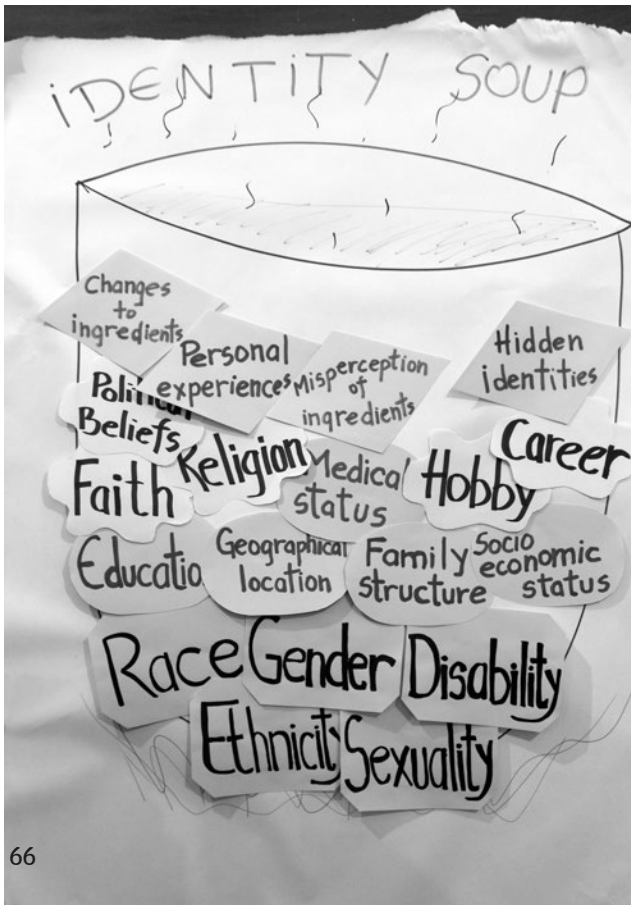 iDENTiTY SOUP
Changes
to
ingredients
Personal
experiences
Misperception
of
ingredients
Hidden
identities
Political
Beliefs
Religion
Career
Faith
Medical
status
Hobby
Educatio
Geographical
location
Family
structure
Socio
economic
status
Race
Gender
Disability
Ethnicity
Sexuality
66